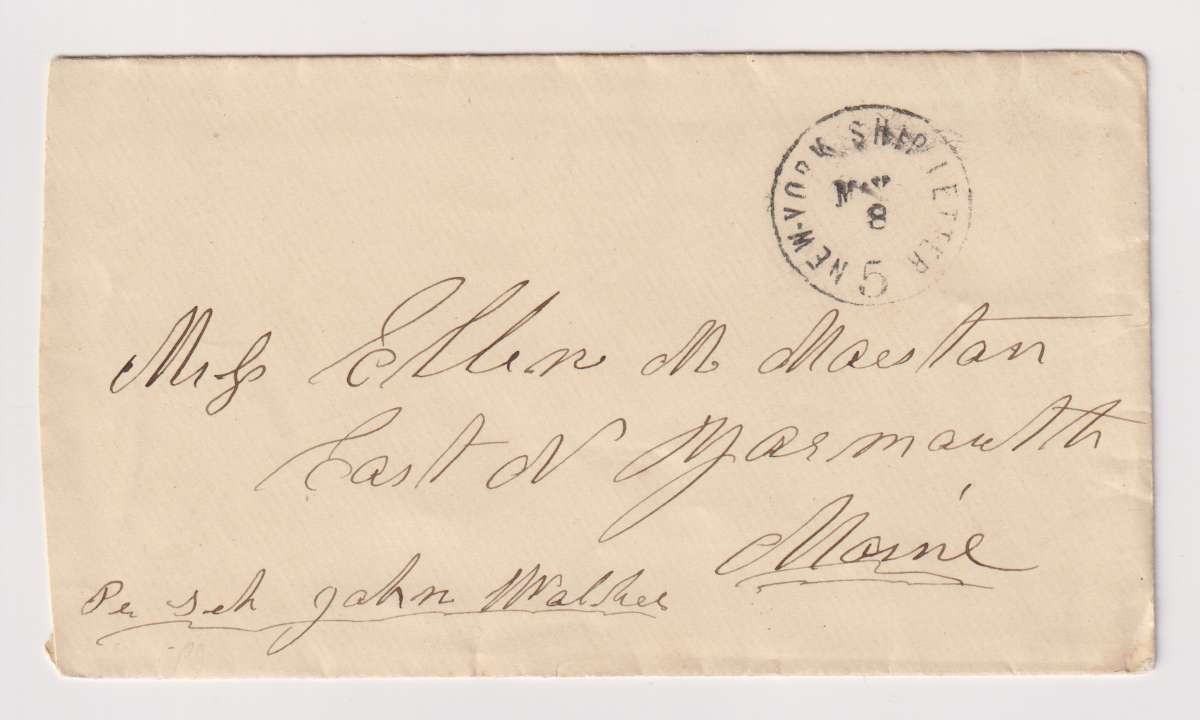 NEW-YORK SHIP LETTER
8
5
Miss Ellen M
East N Yarmouth
Maine
Per Sch John Walker